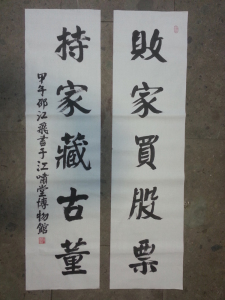 敗家買股票
持家藏古董
甲午邵江飛書于江嘯堂博物館